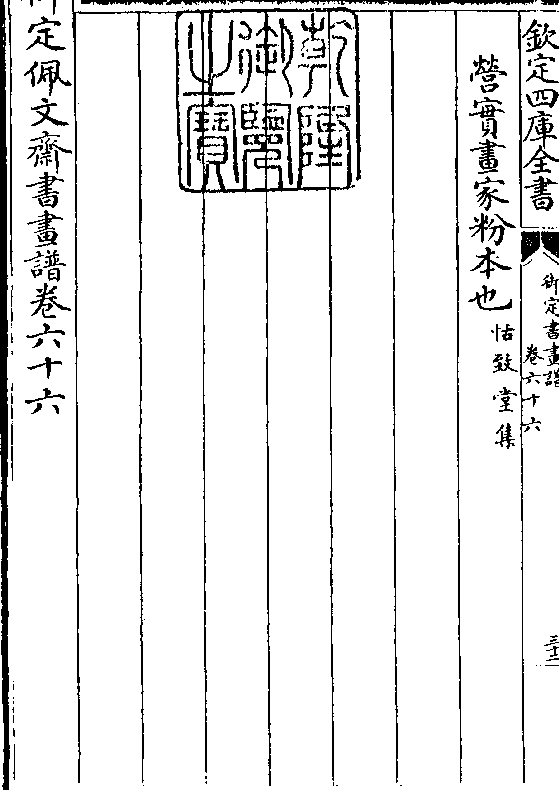 欽定四庫全書
御定書畫譜
卷六十六
三十二
營實畫家粉本也 怡致堂集
乾隆
御覽
之寶
御定佩文齋書畫譜卷六十六